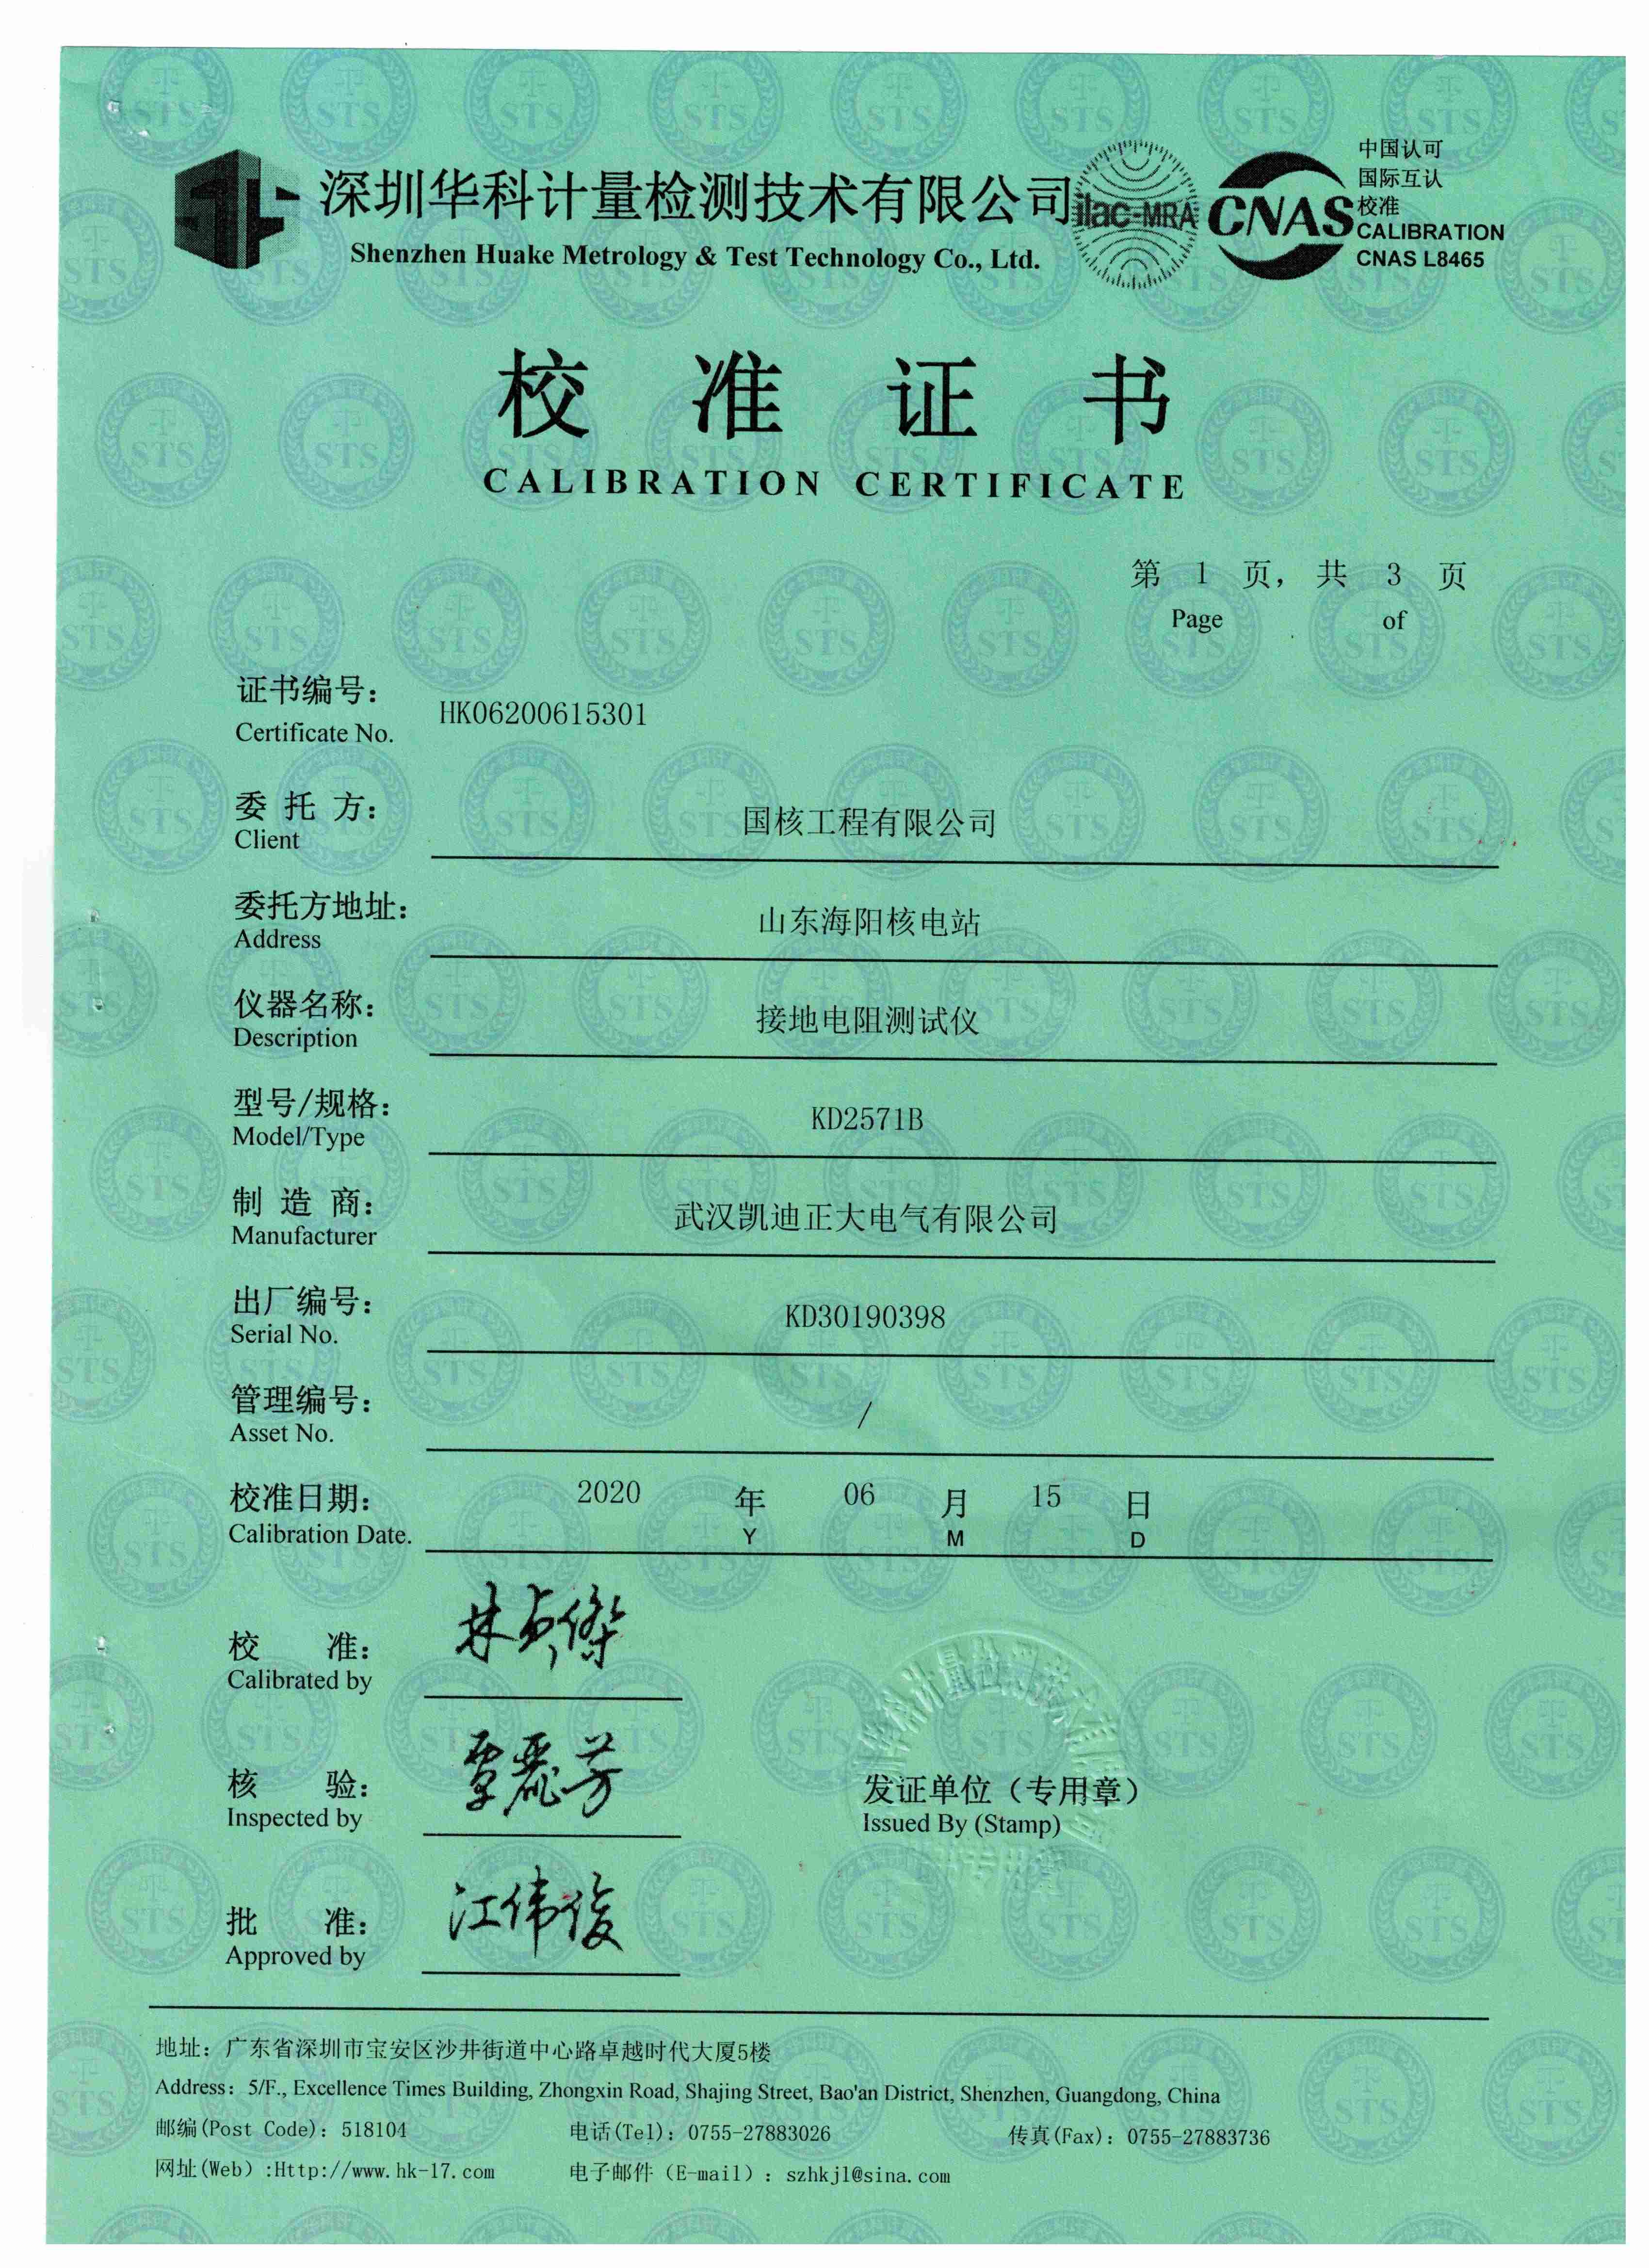 深圳华科计量检测技术有限公司
Shenzhen Huake Metrology & Test Technology Co., Ltd.
ilac-MRA
CNAS
中国认可
国际互认
校准
CALIBRATION
CNAS L8465
校 准 证 书
CALIBRATION CERTIFICATE
第 1 页， 共 3 页
Page of
证书编号： HK06200615301
Certificate No.
委 托 方： 国核工程有限公司
Client
委托方地址： 山东海阳核电站
Address
仪器名称： 接地电阻测试仪
Description
型号/规格： KD2571B
Model/Type
制 造 商： 武汉凯迪正大电气有限公司
Manufacturer
出厂编号： KD30190398
Serial No.
管理编号： /
Asset No.
校准日期： 2020 年 06 月 15 日
Calibration Date. Y M D
校 准：
Calibrated by
核 验： 覃丽芳
Inspected by
发证单位（专用章）
Issued By (Stamp)
批 准： 江伟俊
Approved by
地址：广东省深圳市宝安区沙井街道中心路卓越时代大厦5楼
Address: 5/F., Excellence Times Building, Zhongxin Road, Shajing Street, Bao'an District, Shenzhen, Guangdong, China
邮编(Post Code)：518104 电话(Tel)：0755-27883026 传真(Fax)：0755-27883736
网址(Web) :Http://www.hk-17.com 电子邮件（E-mail）：szhkjl@sina.com